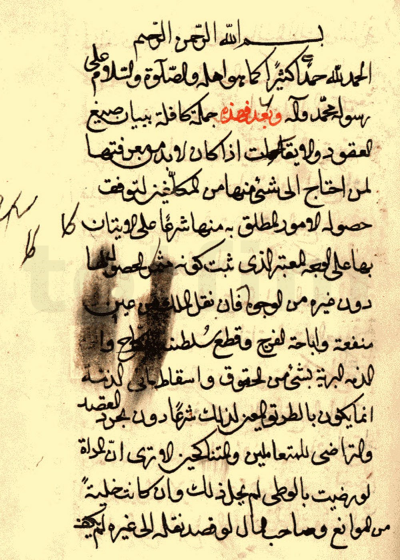 بسم الله الرحمن الرحيم
الحمد لله حمدًا كثيرًا كما هو اهله والصلوة والسلام على
رسوله محمد وآله وبعد فهذه جملة كافلة ببيان صيغ
العقود والايقاعات اذ كان لابد من معرفتها
لمن احتاج الى شئ منها من المكلفين لتوقف
حصول الامور المطلق به منها شرعًا على الاتيان
بها على الوجه المعتبر الذى ثبت كونه
دون غيره من الوجوه فان نقل الملك فى عين
منفعة واباحة الفرج وقطع سلطنة
الذمه البرية بشئ من الحقوق واسقاط ما فى الذمة
انما يكون بالطريق المعين لذلك شرعًا دون مجرد القصد
والتراضى للمتعاملين والمتناكحين الا ترى ان المراة
لو رضيت بالوطى لم يحل ذلك وان كانت خلية
من الموانع وصاحب المال لو قصد نقله الى غيره لم